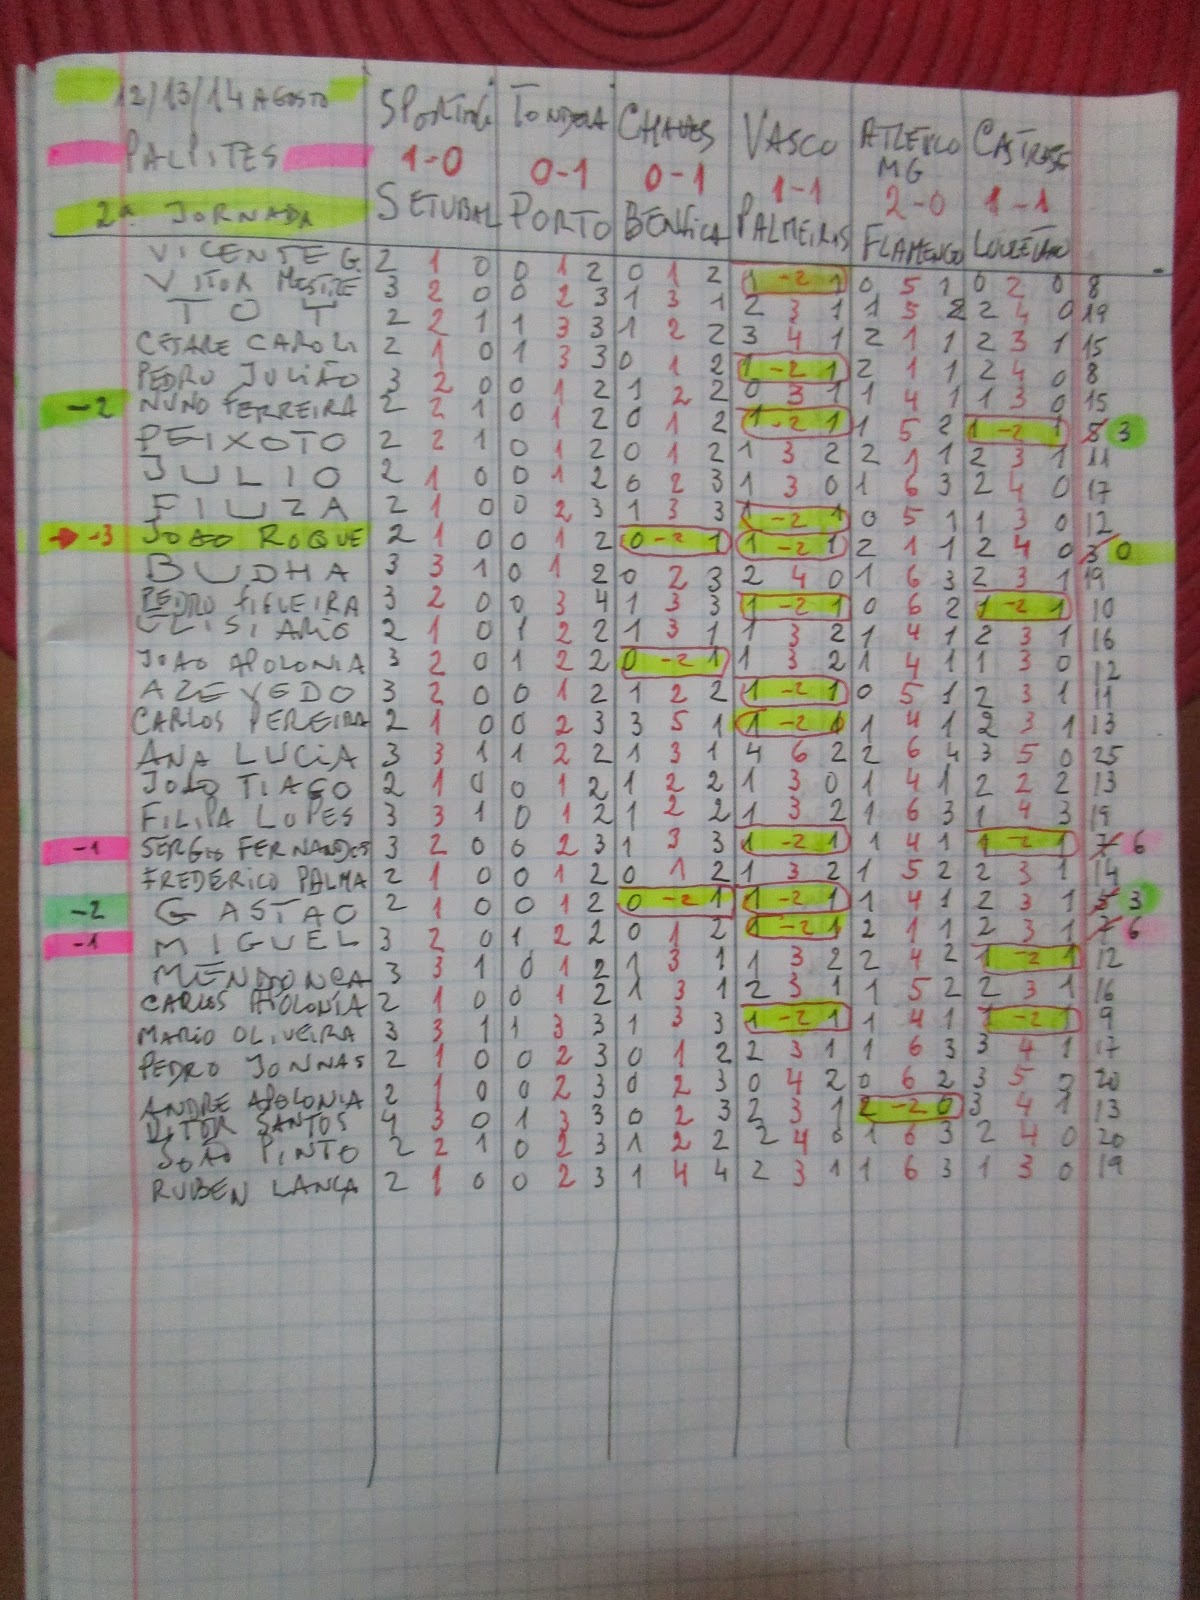 12/13/14 AGOSTO SPORTING TONDELA CHAVES VASCO ATLETICO MG CASTRENSE
PALPITES 1-0 0-1 0-1 1-1 2-0 1-1
2ª JORNADA SETUBAL PORTO BENFICA PALMEIRAS FLAMENGO
VICENTE G. 2 1 0 0 1 2 0 1 2 1 -2 1 0 5 1 0 2 0 8
VITOR MESTRE 3 2 0 0 2 3 1 3 1 2 3 1 1 5 2 2 4 0 19
TOT 2 2 1 1 3 3 1 2 2 3 4 1 2 1 1 2 3 1 15
CESARE CAROLI 2 1 0 1 3 3 0 1 2 1 -2 1 2 1 1 2 4 0 8
PEDRO JULIÃO 3 2 0 0 1 2 1 2 2 0 3 1 1 4 1 1 3 0 15
-2 NUNO FERREIRA 2 2 1 0 1 2 0 1 2 1 -2 1 1 5 2 1 -2 1 5 3
PEIXOTO 2 2 1 0 1 2 0 1 2 1 3 2 2 1 1 2 3 1 11
JULIO 2 1 0 0 1 2 0 2 3 1 3 0 1 6 3 2 4 0 17
FIUZA 2 1 0 0 2 3 1 3 3 1 -2 1 0 5 1 1 3 0 12
-3 JOAO ROQUE 2 1 0 0 1 2 0 -2 1 1 -2 1 2 1 1 2 4 0 3 0
BUDHA 3 3 1 0 1 2 0 2 3 2 4 0 1 6 3 2 3 1 19
PEDRO FIGUEIRA 3 2 0 0 3 4 1 3 3 1 -2 1 0 6 2 1 -2 1 10
ULISIARIO 2 1 0 1 2 2 1 3 1 1 3 2 1 4 1 2 3 1 16
JOAO APOLONIA 3 2 0 1 2 2 0 -2 1 1 3 2 1 4 1 1 3 0 12
AZEVEDO 3 2 0 0 1 2 1 2 2 1 -2 1 0 5 1 2 3 1 11
CARLOS PEREIRA 2 1 0 0 2 3 3 5 1 1 -2 1 1 4 1 2 3 1 13
ANA LUCIA 3 3 1 1 2 2 1 3 1 4 6 2 2 6 4 3 5 0 25
JOAO TIAGO 2 1 0 0 1 2 1 2 2 1 3 0 1 4 1 2 2 2 13
FILIPA LOPES 3 3 1 0 1 2 1 2 2 1 3 2 1 6 3 1 4 3 19
-1 SERGIO FERNANDES 3 2 0 0 2 3 1 3 3 1 -2 1 1 4 1 1 -2 1 7 6
FREDERICO PALMA 2 1 0 0 1 2 0 1 2 1 3 2 1 5 2 2 3 1 14
-2 GASTAO 2 1 0 0 1 2 0 -2 1 1 -2 1 1 4 1 2 3 1 5 3
-1 MIGUEL 3 2 0 1 2 2 0 1 2 1 -2 1 2 1 1 2 3 1 7 6
MENDONCA 3 3 1 0 1 2 1 3 1 1 3 2 2 4 2 1 -2 1 12
CARLOS APOLONIA 2 1 0 0 1 2 1 3 1 2 3 1 1 5 2 2 3 1 16
MARIO OLIVEIRA 3 3 1 1 3 3 1 3 3 1 -2 1 1 4 1 1 -2 1 9
PEDRO JONNAS 2 1 0 0 2 3 0 1 2 2 3 1 1 6 3 3 4 1 17
ANDRE APOLONIA 2 1 0 0 2 3 0 2 3 0 4 2 0 6 2 3 5 0 20
VITOR SANTOS 4 3 0 1 3 3 0 2 3 2 3 1 2 -2 0 3 4 1 13
JOÃO PINTO 2 2 1 0 2 3 1 2 2 2 4 0 1 6 3 2 4 0 20
RUBEN LANÇA 2 1 0 0 2 3 1 4 4 2 3 1 1 6 3 1 3 0 19